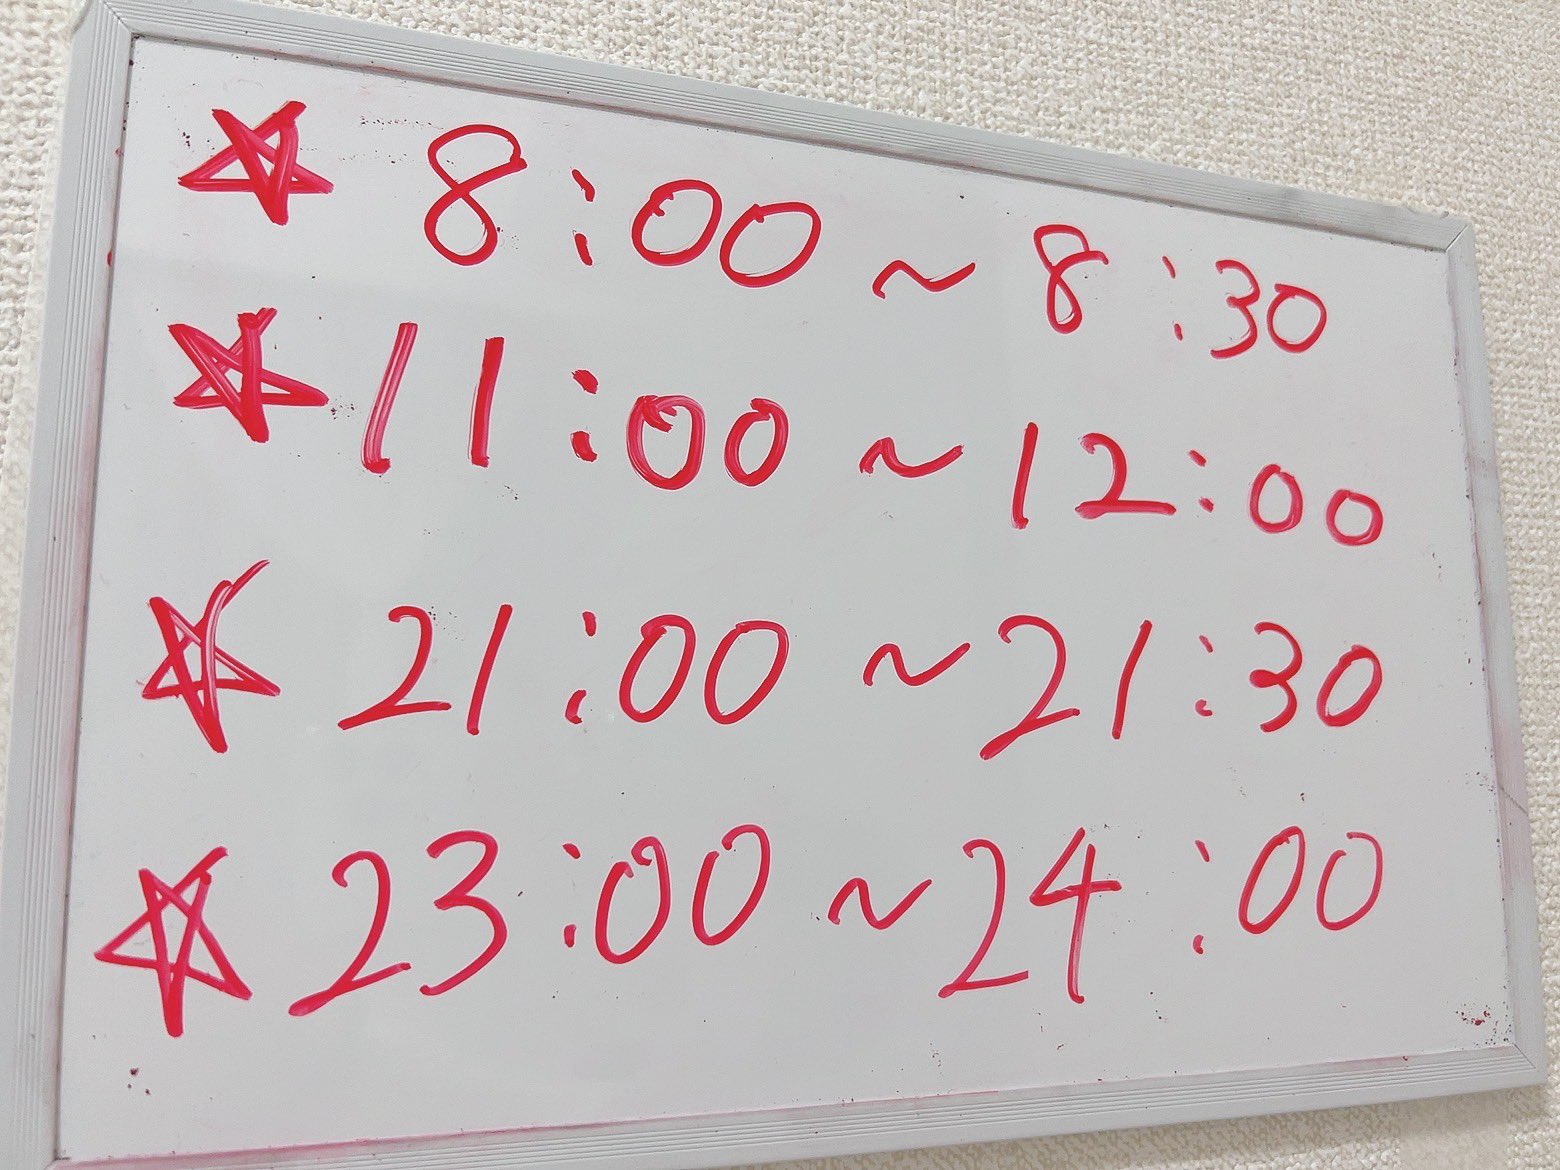 ☆ 8:00 ~ 8:30
☆ 11:00 ~ 12:00
☆ 21:00 ~ 21:30
☆ 23:00 ~ 24:00